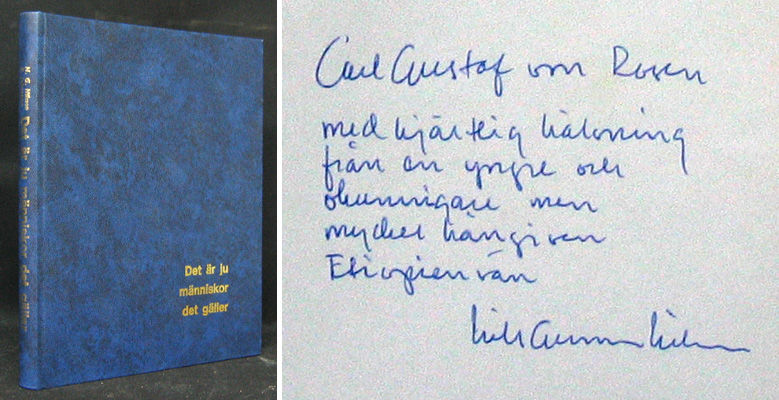 N. G. Nilsson Det är ju människor det gäller
Det är ju
människor
det gäller
Carl Gustaf von Rosen
med hjärtlig hälsning
från en yngre och
okunnigare men
mycket hängiven
Etiopienvän
Nils Gunnar Nilsson